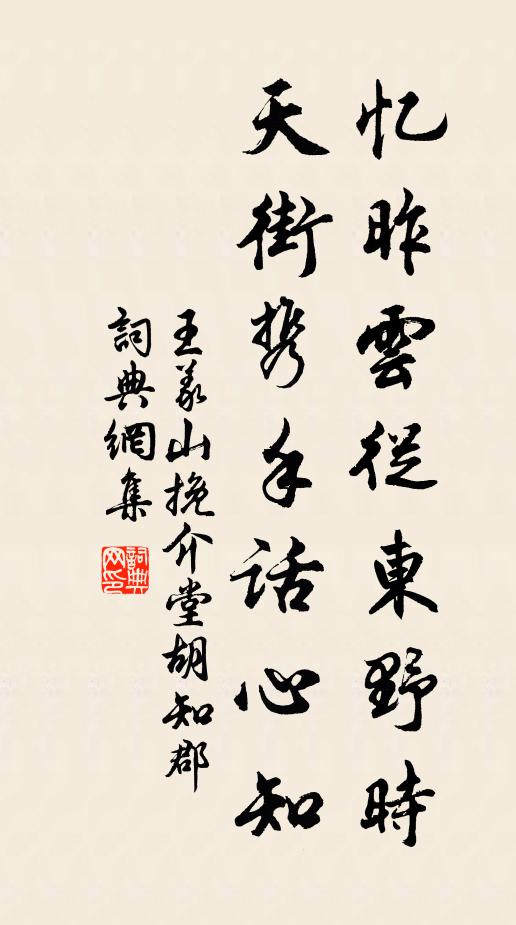 忆昨雲從東野時
天街携手話心知
王义山挽介堂胡知郡
詞典網集
詞典網印